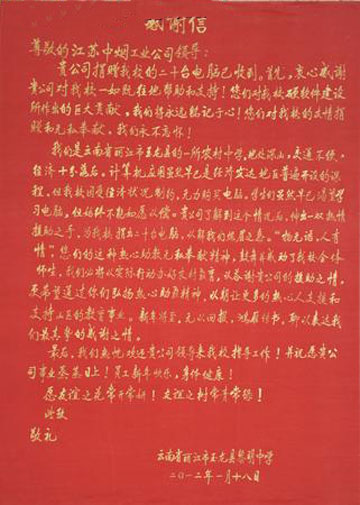 感谢信
尊敬的江苏中烟工业公司领导：
贵公司捐赠我校的二十台电脑已收到。首先，衷心感谢
贵公司对我校一如既往地帮助和支持！您们对我校硬软件建设
所作出的巨大贡献，我们将永远铭记于心！您们对我校的友情捐
赠和无私奉献，我们永不忘怀！
我们是云南省丽江市玉龙县的一所农村中学，地处深山，交通不便，
经济十分落后。计算机应用虽然早已是经济发达地区普遍开设的课
程，但我校因受经济状况制约，无力购买电脑。学生们虽然早已渴望学
习电脑，但始终不能如愿以偿。贵公司了解到这个情况后，伸出一双热情
援助之手，为我校捐二十台电脑，以解我们燃眉之急。“物无语，人有
情”，您们的这种热心助教无私奉献精神，鼓舞并感动了我校全体
师生，我们必将以实际行动办好农村教育，以答谢贵公司的援助之情。
更希望通过你们弘扬热心助教精神，以期让更多的热心人支援和
支持山区的教育事业。新年将至，无以回报，鸿雁付书，聊以表达我
们最真挚的感谢之情。
最后，我们热忱欢迎贵公司领导来我校指导工作！并祝愿贵公
司事业蒸蒸日上！员工新年快乐，身体健康！
愿友谊之花常开常新！友谊之树常青常绿！
此致
敬礼
云南省丽江市玉龙县黎明中学
二〇一二年一月十八日